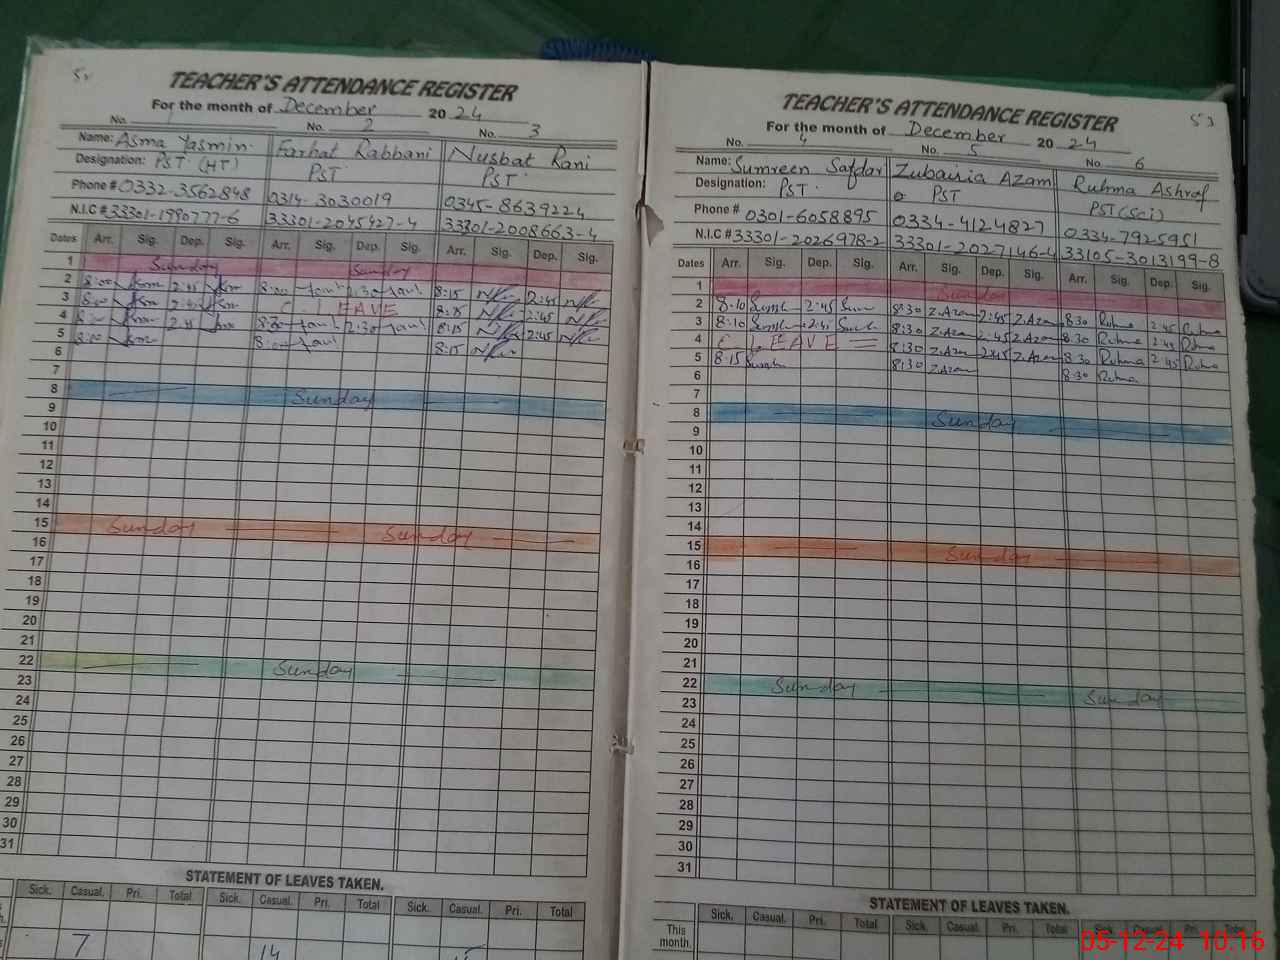 52
TEACHER'S ATTENDANCE REGISTER
For the month of December 2024
No. 1 No. 2 No. 3
Name: Asma Yasmin Farhat Rabbani Nusbat Rani
Designation: PST (HT) PST PST
Phone # 0332-3562848 0314-3030019 0345-8639224
N.I.C # 33301-1990777-6 33301-2045427-4 33301-2008663-4
Dates Arr. Sig. Dep. Sig. Arr. Sig. Dep. Sig. Arr. Sig. Dep. Sig.
1 Sunday Sunday
2 8:00 2:45 8:00 2:30 8:15 2:45
3 8:00 2:45 C. LEAVE 8:15 2:45
4 8:00 2:45 8:00 2:30 8:15 2:45
5 8:00 8:00 8:15
6
7
8 Sunday
9
10
11
12
13
14
15 Sunday Sunday
16
17
18
19
20
21
22 Sunday
23
24
25
26
27
28
29
30
31
STATEMENT OF LEAVES TAKEN.
Sick. Casual. Pri. Total Sick. Casual. Pri. Total Sick. Casual. Pri. Total
7 14
53
TEACHER'S ATTENDANCE REGISTER
For the month of December 2024
No. 4 No. 5 No. 6
Name: Sumreen Safdar Zubairia Azam Ruhma Ashraf
Designation: PST PST PST (Sci)
Phone # 0301-6058895 0334-4124827 0334-7925951
N.I.C # 33301-2026978-2 33301-2027146-4 33105-3013199-8
Dates Arr. Sig. Dep. Sig. Arr. Sig. Dep. Sig. Arr. Sig. Dep. Sig.
1 Sunday
2 8:10 2:45 8:30 Z.Azam 2:45 Z.Azam 8:30 Ruhma 2:45 Ruhma
3 8:10 2:45 8:30 Z.Azam 2:45 Z.Azam 8:30 Ruhma 2:45 Ruhma
4 C. LEAVE 8:30 Z.Azam 2:45 Z.Azam 8:30 Ruhma 2:45 Ruhma
5 8:15 8:30 Z.Azam 8:30 Ruhma
6
7
8 Sunday
9
10
11
12
13
14
15 Sunday
16
17
18
19
20
21
22 Sunday Sunday
23
24
25
26
27
28
29
30
31
STATEMENT OF LEAVES TAKEN.
Sick. Casual. Pri. Total Sick. Casual. Pri. Total Sick. Casual. Pri. Total
This month.
05-12-24 10:16